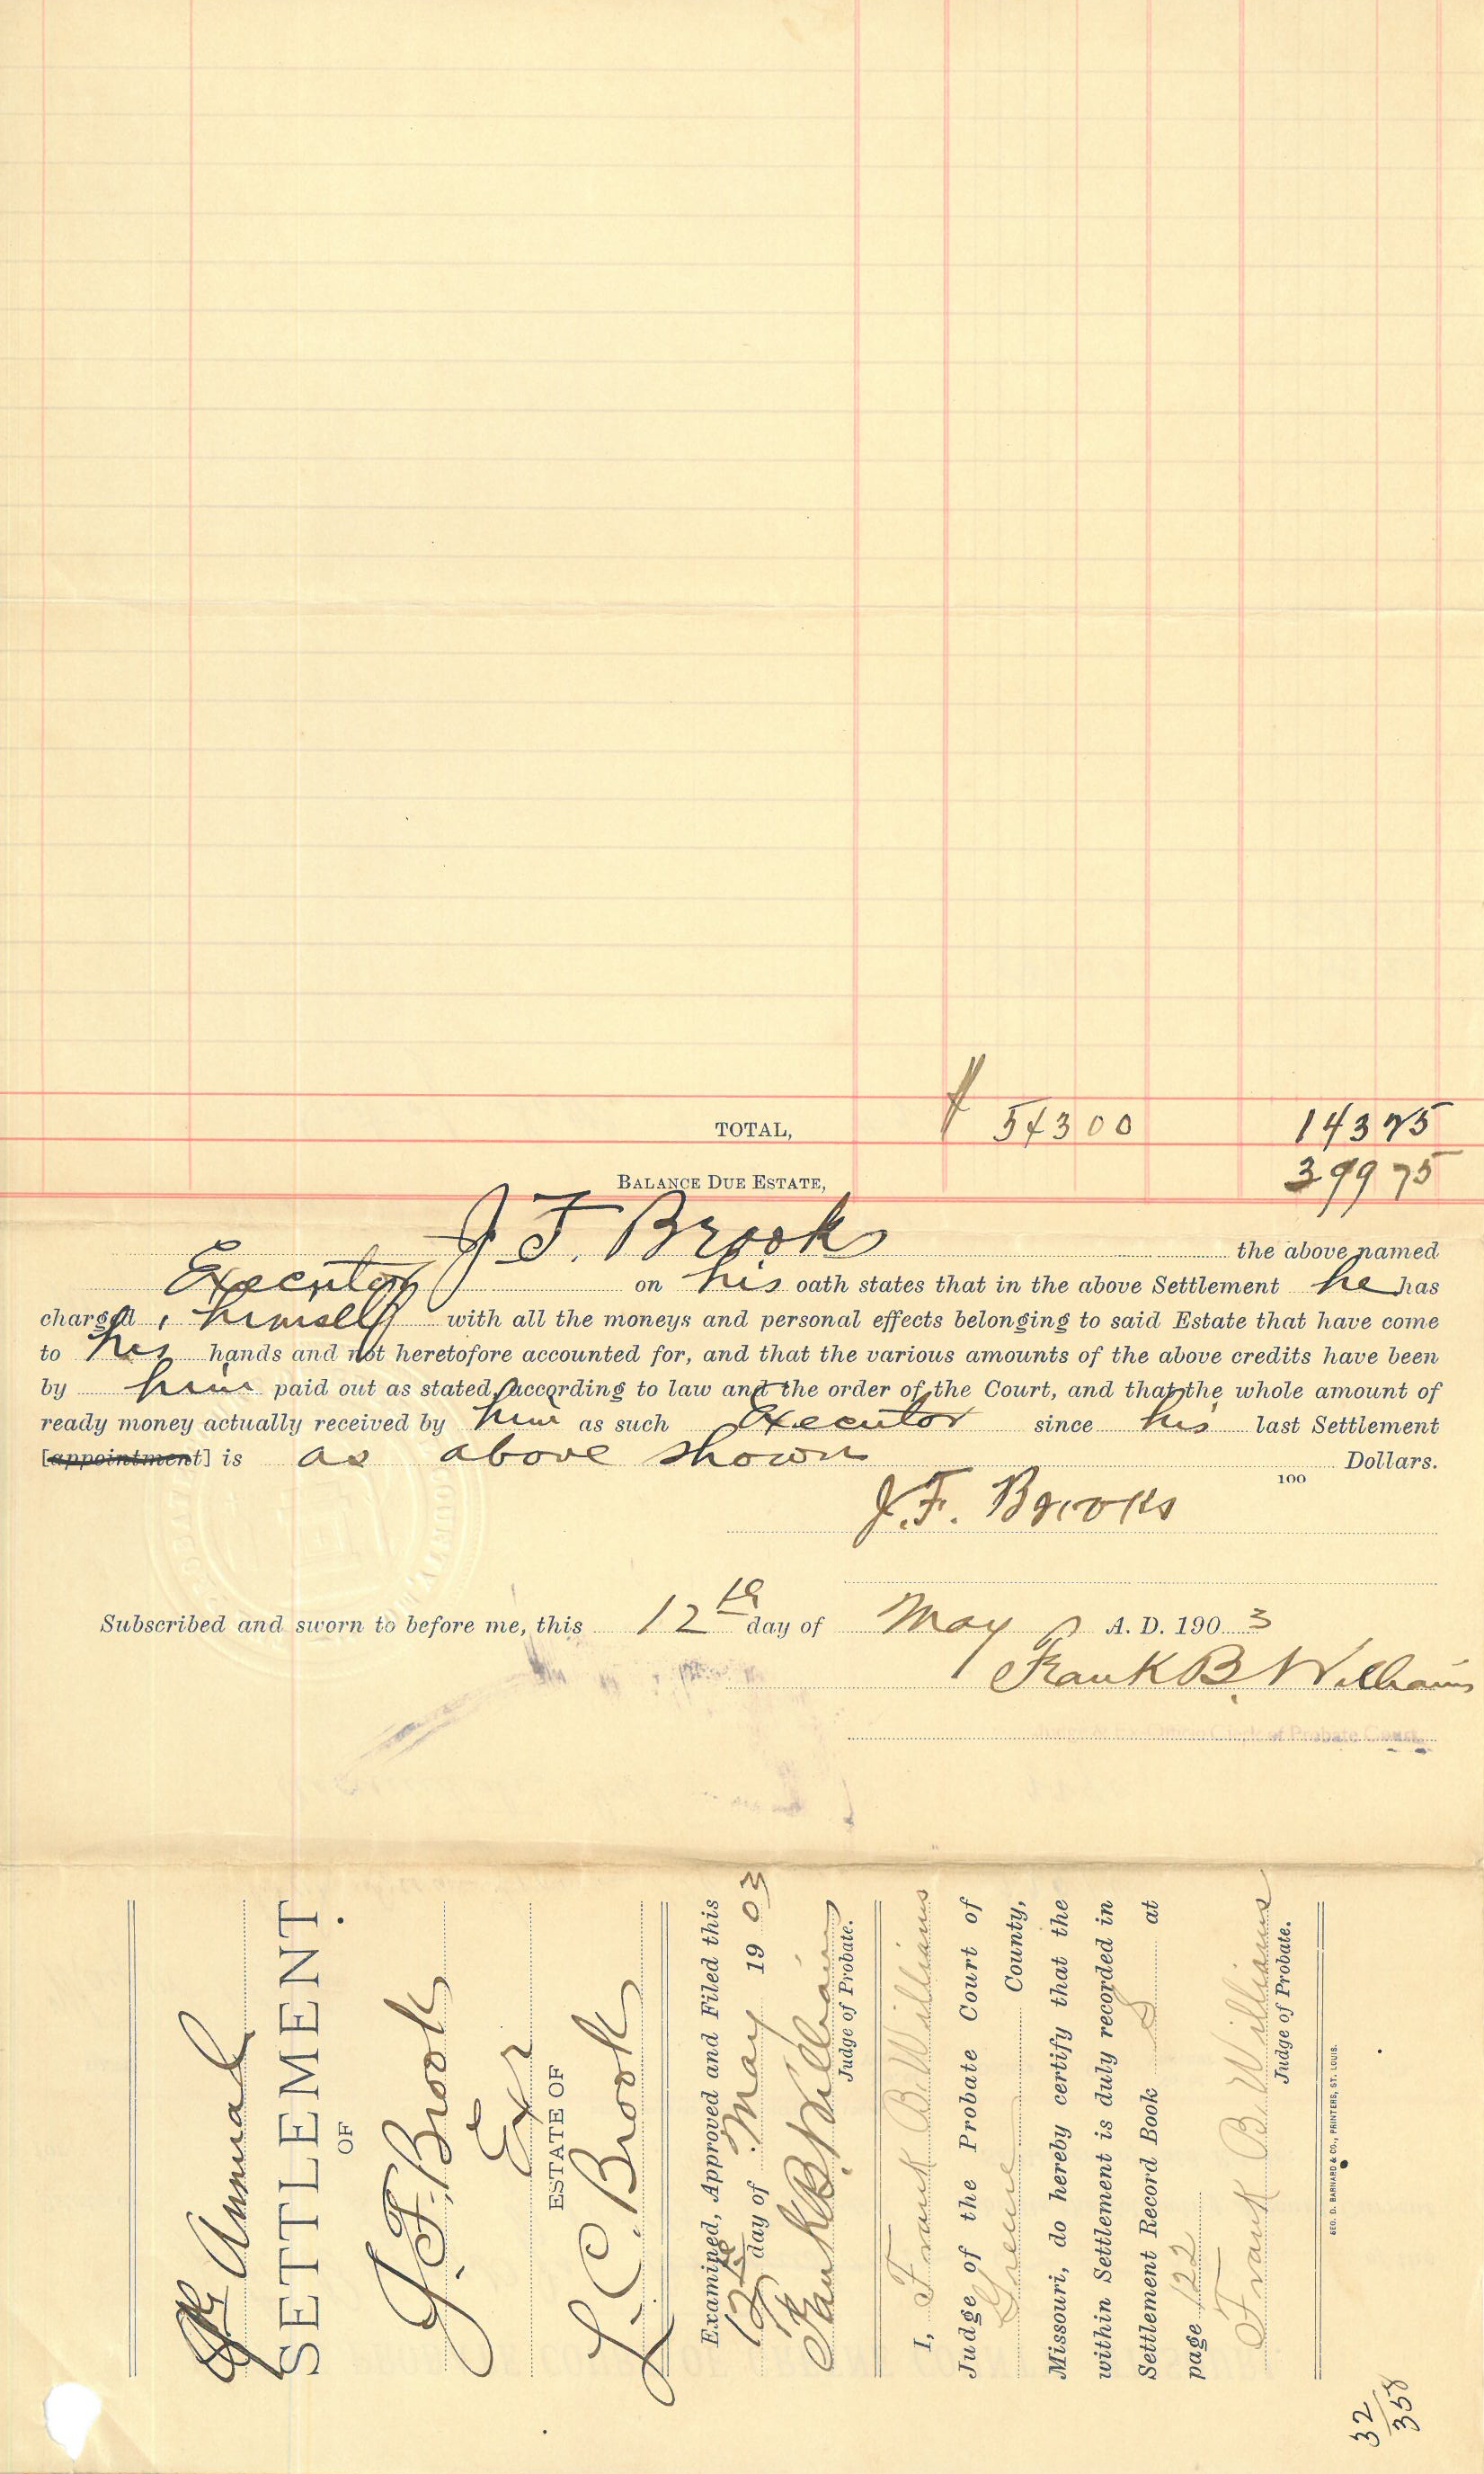 TOTAL, $ 543 00 143 25
BALANCE DUE ESTATE, 399 75
J. F. Brooks the above named
Executor on his oath states that in the above Settlement he has
charged himself with all the moneys and personal effects belonging to said Estate that have come
to his hands and not heretofore accounted for, and that the various amounts of the above credits have been
by him paid out as stated, according to law and the order of the Court, and that the whole amount of
ready money actually received by him as such Executor since his last Settlement
[appointment] is as above shown Dollars.
100
J. F. Brooks
Subscribed and sworn to before me, this 12th day of May A. D. 190 3
Frank B. Williams
Judge & Ex-Officio Clerk of Probate Court
Annual
SETTLEMENT
OF
J. F. Brooks
Exr
ESTATE OF
L. C. Brooks
Examined, Approved and Filed this
12th day of May 19 03
Frank B. Williams
Judge of Probate.
I, Frank B. Williams
Judge of the Probate Court of
Greene County,
Missouri, do hereby certify that the
within Settlement is duly recorded in
Settlement Record Book S at
page 122
Frank B. Williams
Judge of Probate.
GEO. D. BARNARD & CO., PRINTERS, ST. LOUIS.
32
358